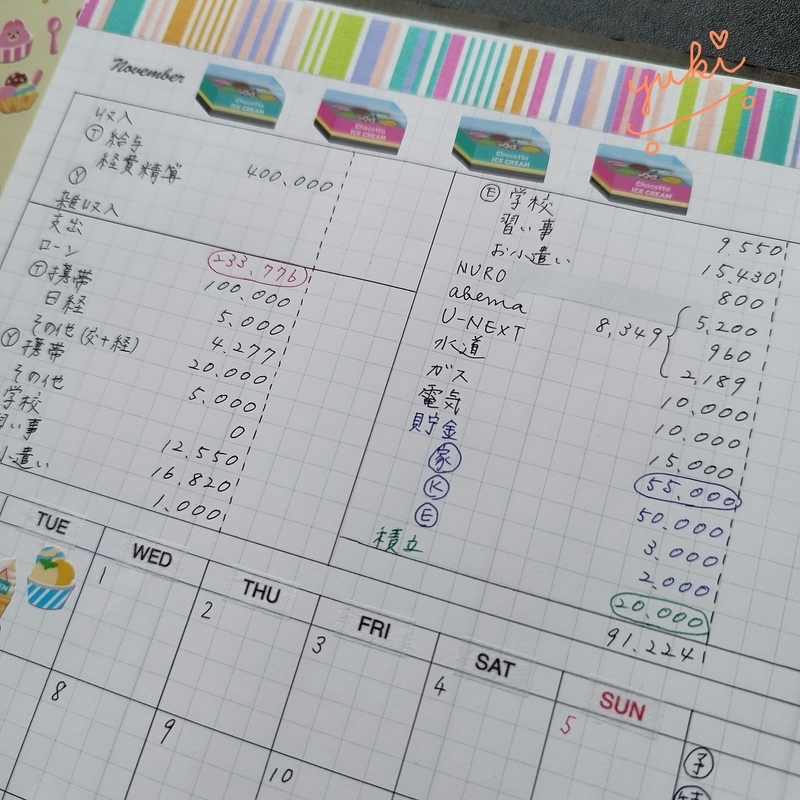 yuki
November
Chocotto ICE CREAM
Chocotto ICE CREAM
Chocotto ICE CREAM
Chocotto ICE CREAM
収入
Ⓣ 給与 400.000
経費精算
Ⓨ
雑収入
支出 233.776
ローン 100.000
Ⓣ携帯 5.000
日経 4.277
その他(交+経) 20.000
Ⓨ携帯 5.000
その他 0
学校 12.550
い事 16.820
小遣い 1.000
Ⓔ 学校 9.550
習い事 15.430
お小遣い 800
NURO 5.200
abema 8.349 960
U-NEXT 2.189
水道 10.000
ガス 10.000
電気 15.000
貯金 55.000
家 50.000
Ⓚ 3.000
Ⓔ 2.000
積立 20.000
91.224
TUE WED THU FRI SAT SUN
1 2 3 4 5
8 9 10
予